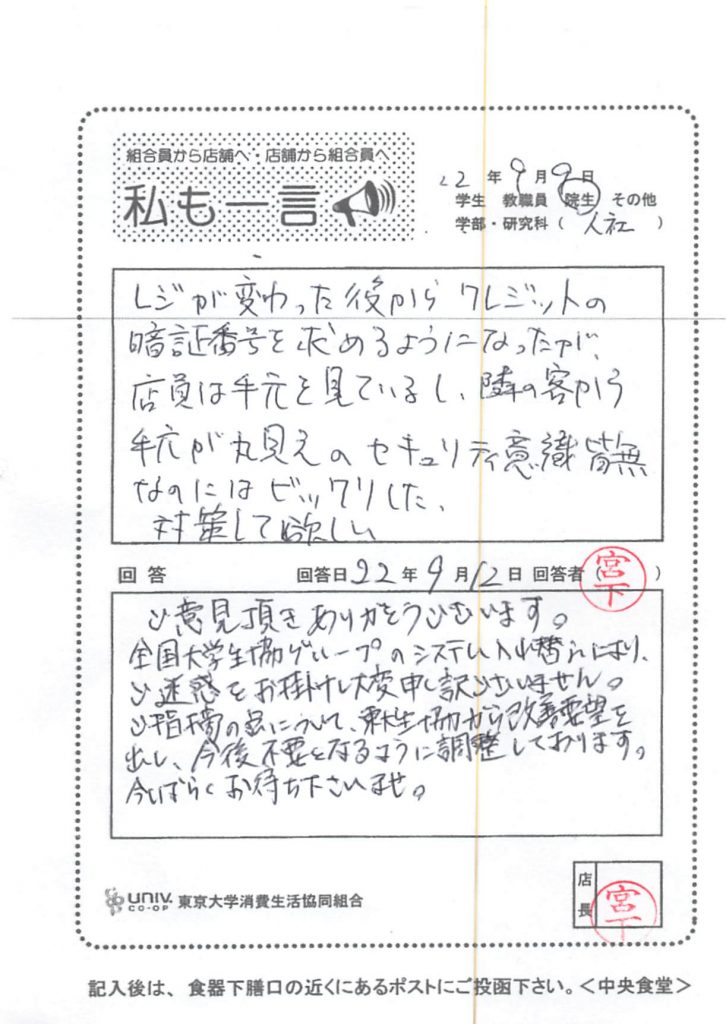 組合員から店舗へ・店舗から組合員へ
私も一言
22年9月9日
学生 教職員 院生 その他
学部・研究科（人社）
レジが変わった後から クレジットの
暗証番号を求めるようになったが、
店員は手元を見ているし、隣の客から
手元が丸見えのセキュリティ意識皆無
なのにはビックリした、
対策して欲しい
回答 回答日22年9月12日 回答者（宮下）
ご意見頂きありがとうございます。
全国大学生協グループのシステム入れ替えにより、
ご迷惑をお掛けし大変申し訳ございません。
ご指摘の点について、東大生協から改善要望を
出し、今後不要となるように調整しております。
今しばらくお待ち下さいませ。
店長 宮下
UNIV. CO-OP 東京大学消費生活協同組合
記入後は、食器下膳口の近くにあるポストにご投函下さい。＜中央食堂＞